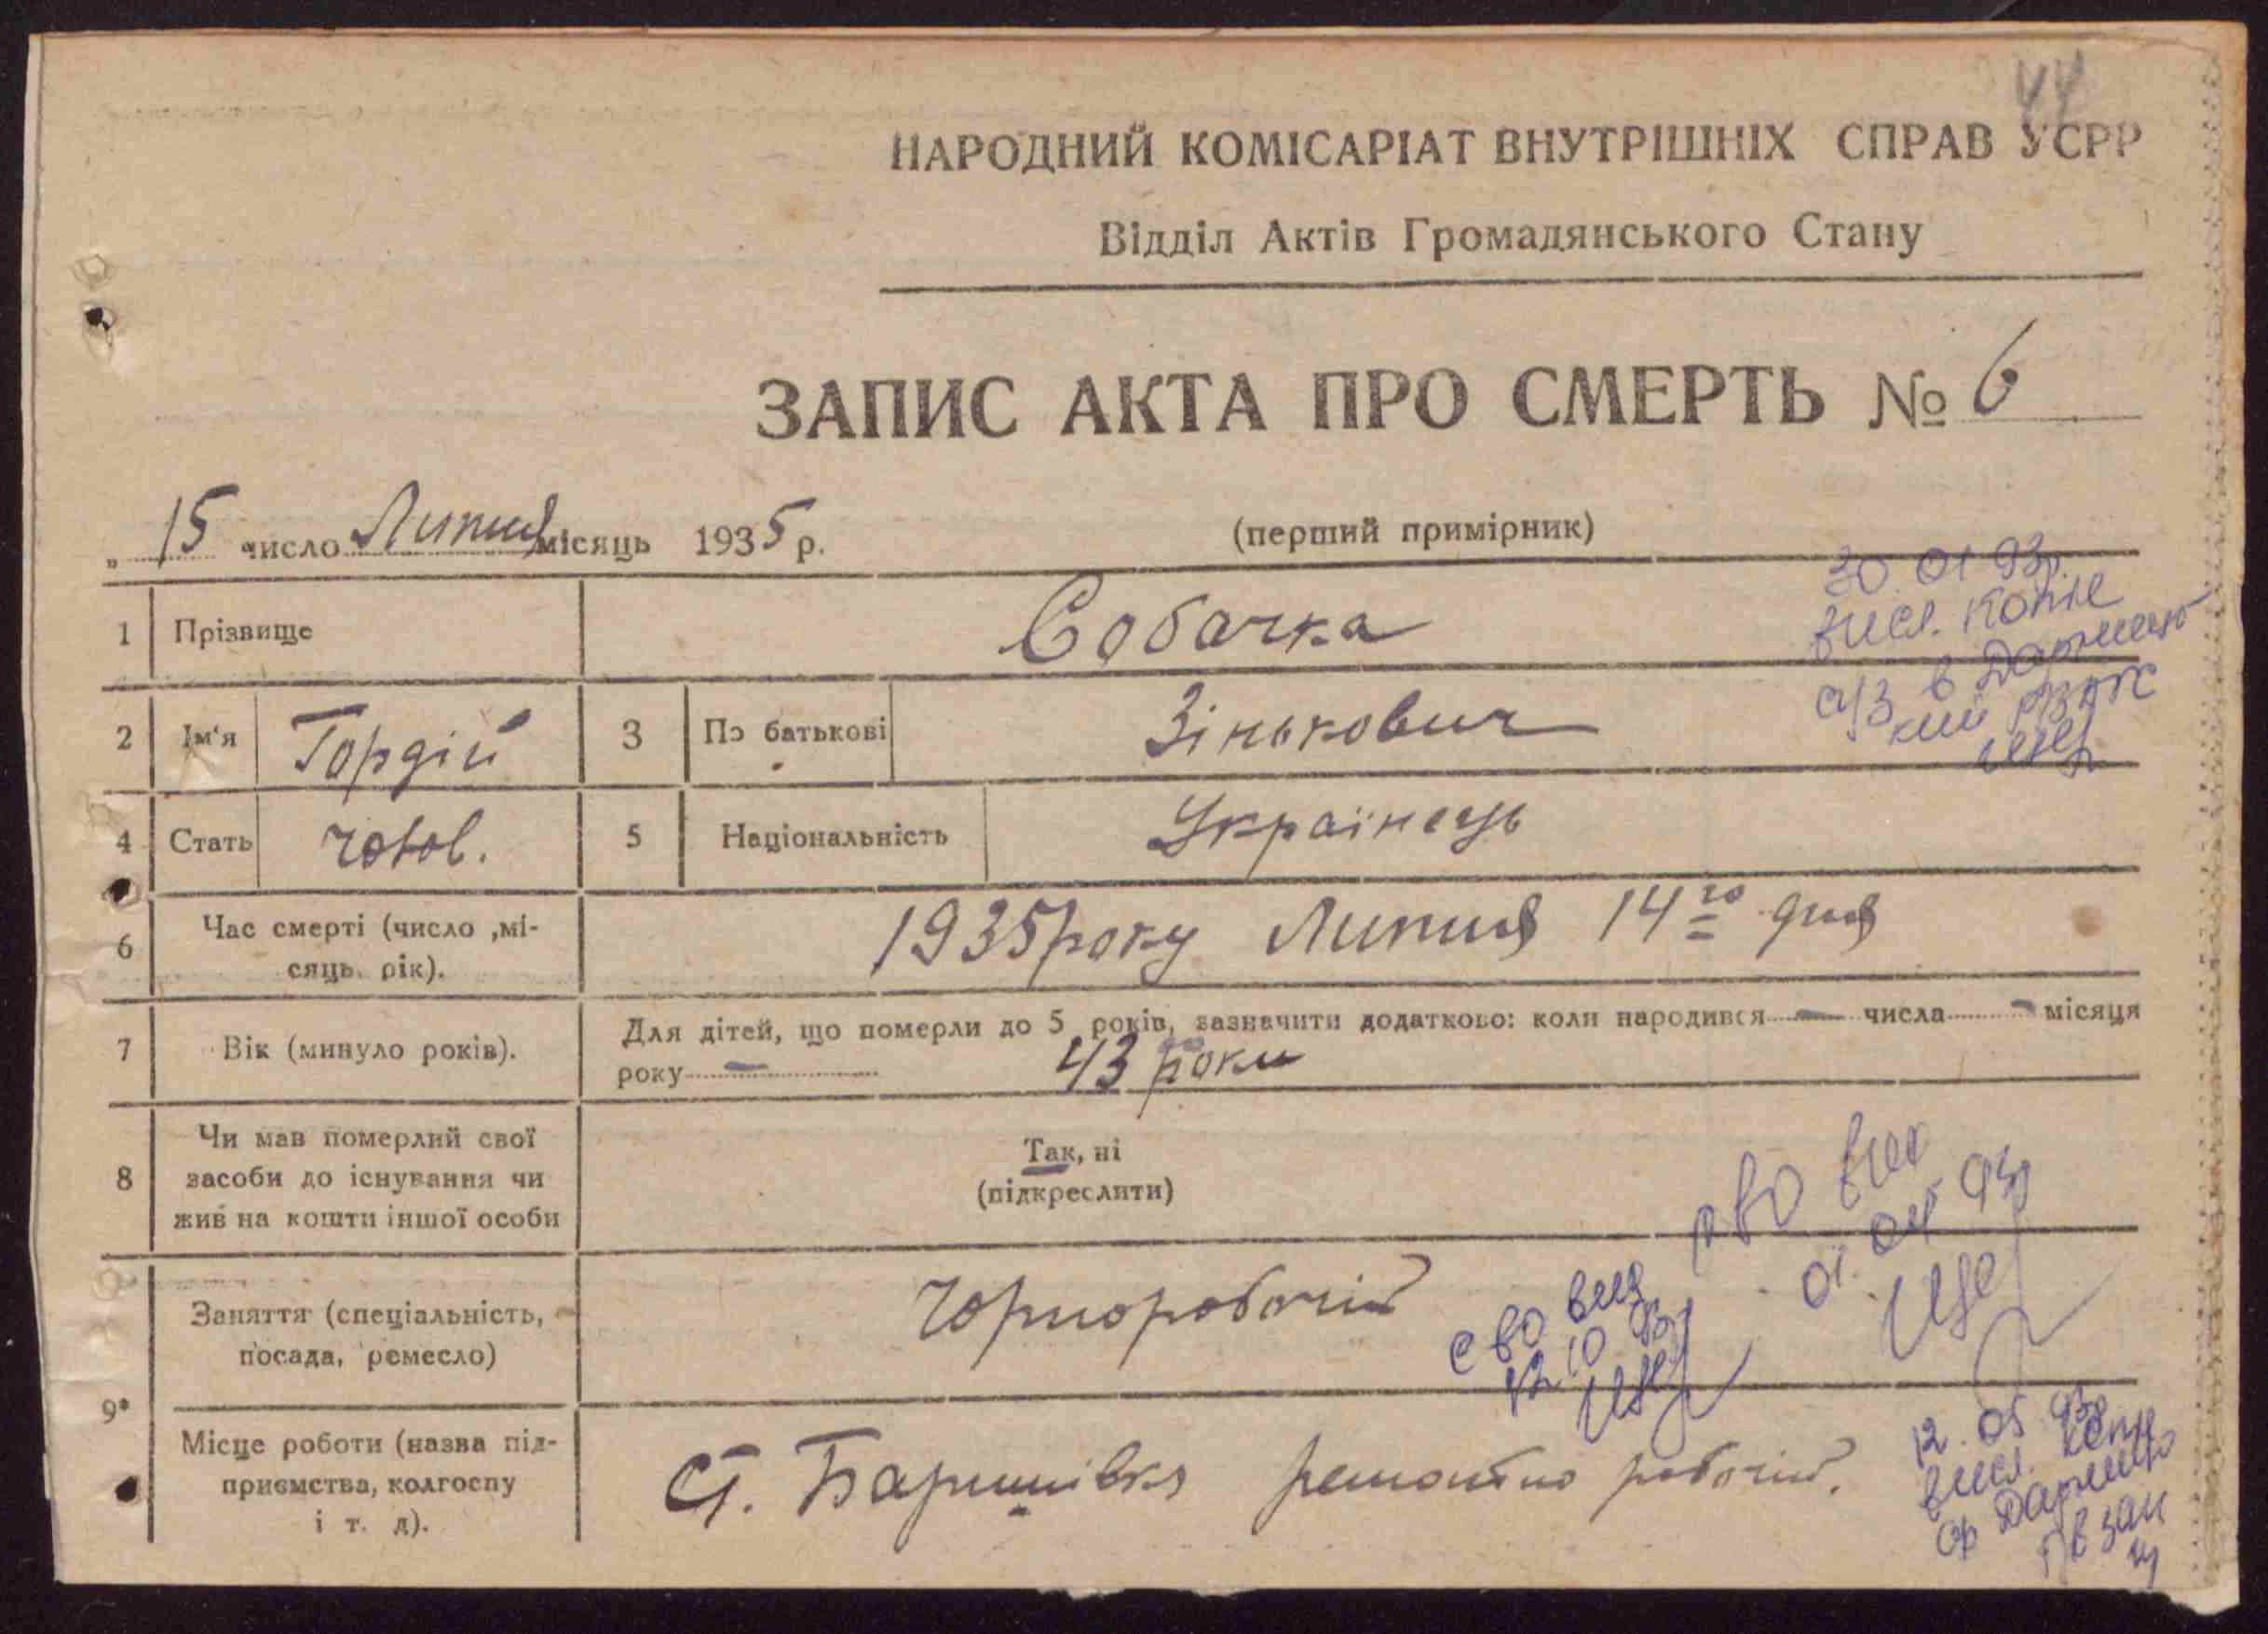 44
НАРОДНИЙ КОМІСАРІАТ ВНУТРІШНІХ СПРАВ УСРР
Відділ Актів Громадянського Стану
ЗАПИС АКТА ПРО СМЕРТЬ № 6
„ 15 число Липня місяць 1935 р.
(перший примірник)
1 Прізвище Собачка
2 Ім'я Гордій 3 По батькові Зінькович
4 Стать чолов. 5 Національність Українець
6 Час смерті (число ,мі-
сяць, рік).
1935 року Липня 14го дня
7 Вік (минуло років).
Для дітей, що померли до 5 років, зазначити додатково: коли народився — числа — місяця
року — 43 роки
8 Чи мав померлий свої
засоби до існування чи
жив на кошти іншої особи
Так, ні
(підкреслити)
9*
Заняття (спеціальність,
посада, ремесло)
Чорноробочий
Місце роботи (назва під-
приємства, колгоспу
і т. д).
Ст. Баришівка ремонтно робочий.
30 01 93р.
висл. копіє
а/з в Дарницьт
кий
с во вид
12 10 93р
во
01. 04 93р
12. 05 93р
висл.